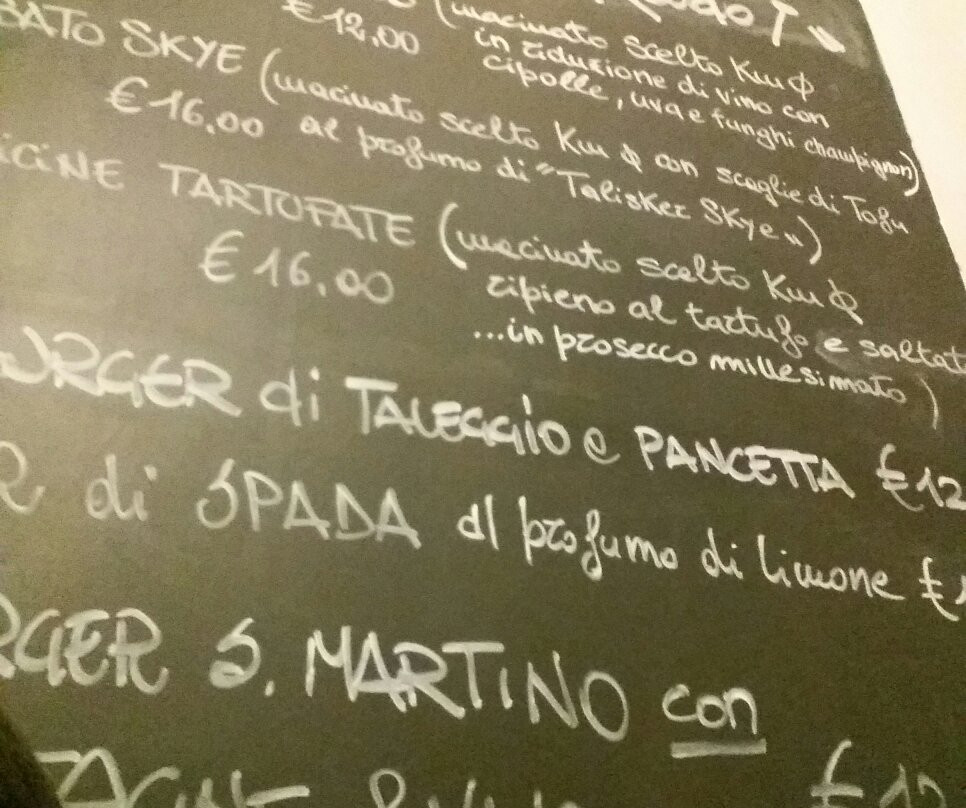 € 12.00 (macinato scelto Km Ø
in riduzione di vino con
cipolle, uva e funghi champignon)
BATO SKYE (macinato scelto Km Ø con scaglie di Tofu
€ 16.00 al profumo di "Talisker Skye")
CINE TARTUFATE (macinato scelto Km Ø
€ 16.00 ripieno al tartufo e saltato
...in prosecco millesimato)
URGER di TALEGGIO e PANCETTA € 12
R di SPADA al profumo di limone €
RGER S. MARTINO con
€ 12